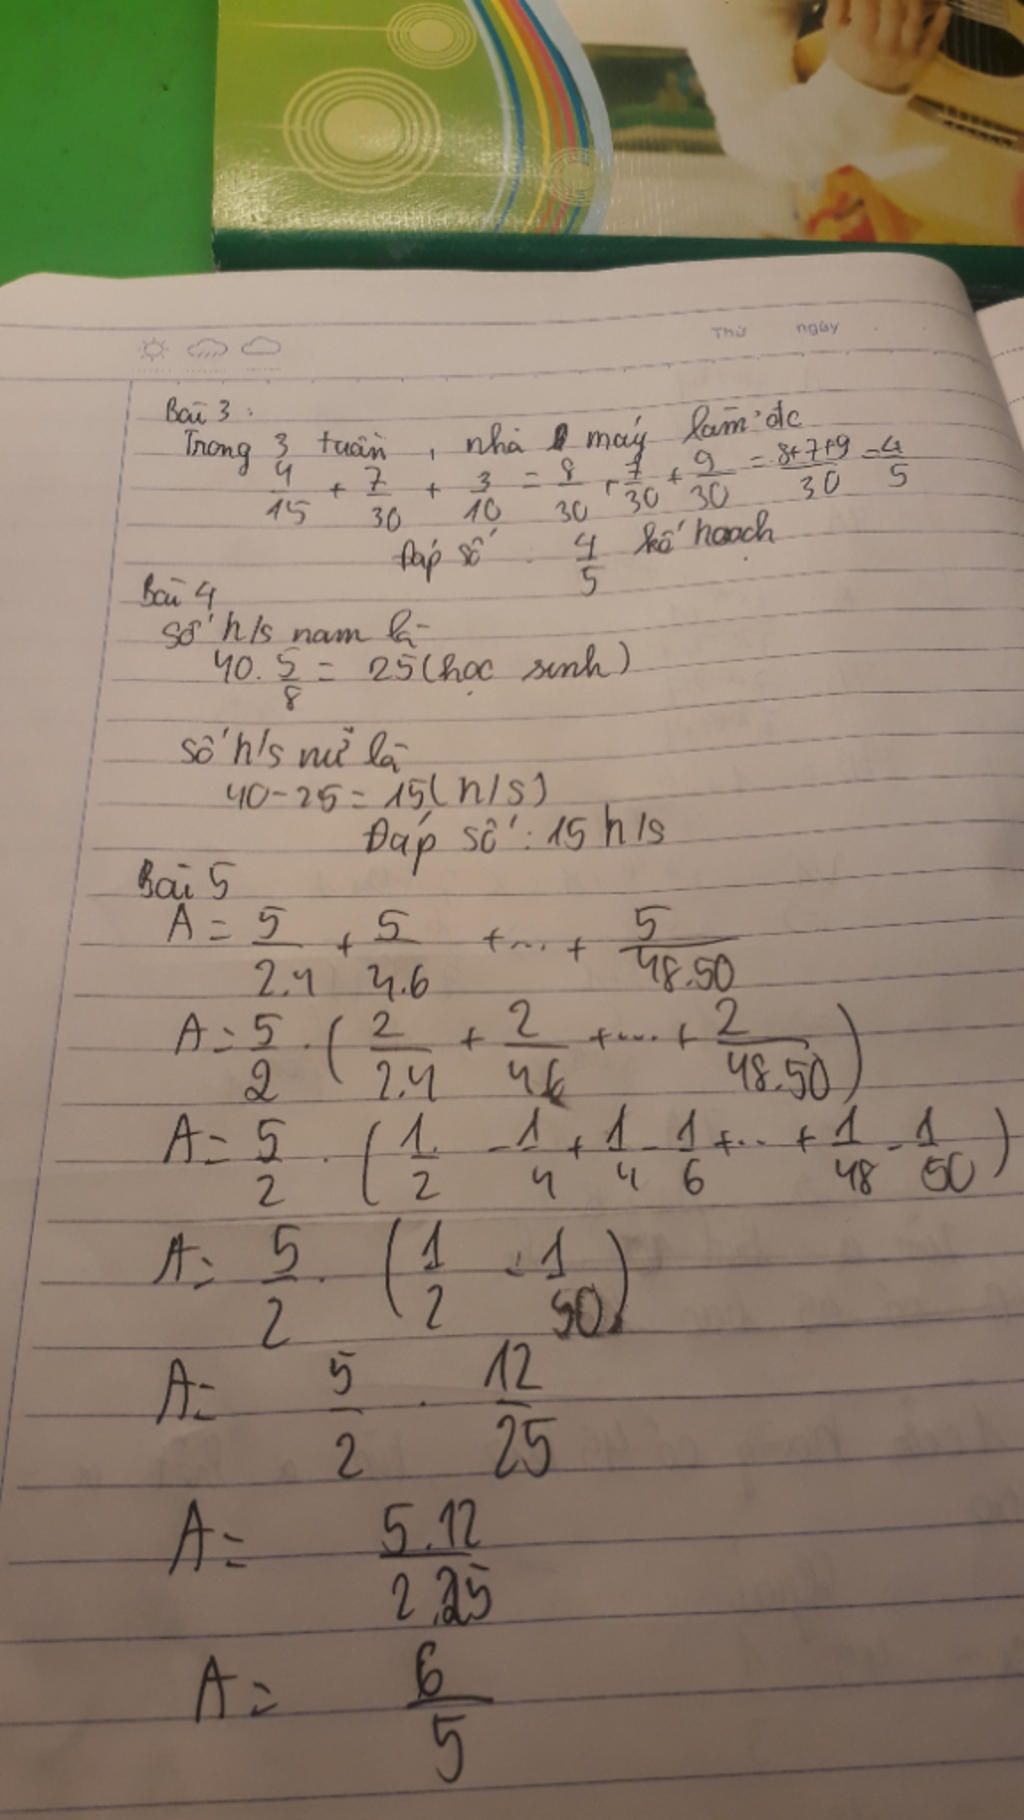 Thứ ngày
Bài 3:
Trong 3 tuần, nhà máy làm đc
4/15 + 7/30 + 3/10 = 8/30 + 7/30 + 9/30 = 8+7+9/30 = 4/5
Đáp số: 4/5 kế hoạch
Bài 4
số h/s nam là
40. 5/8 = 25 (học sinh)
số h/s nữ là
40-25=15(h/s)
Đáp số: 15 h/s
Bài 5
A= 5/2.4 + 5/4.6 +...+ 5/48.50
A= 5/2 . ( 2/2.4 + 2/4.6 +...+ 2/48.50 )
A= 5/2 . ( 1/2 - 1/4 + 1/4 - 1/6 +...+ 1/48 - 1/50 )
A= 5/2 . ( 1/2 - 1/50 )
A= 5/2 . 12/25
A= 5.12/2.25
A= 6/5